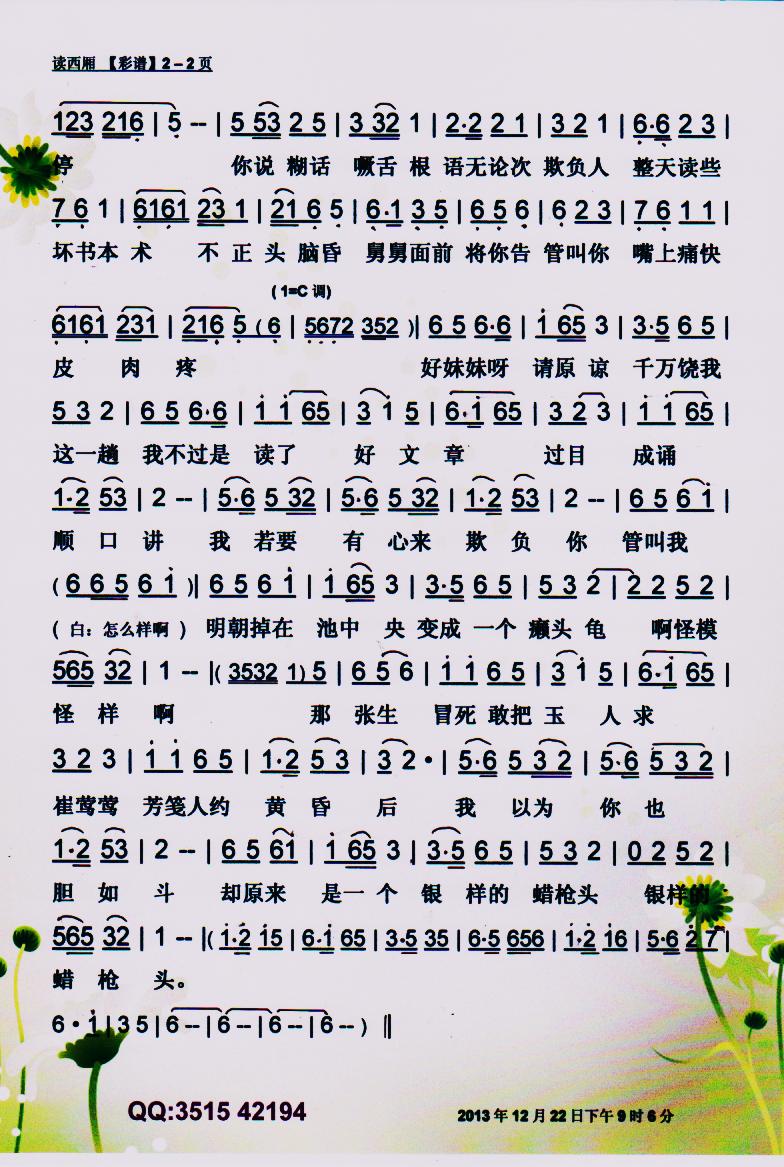 读西厢 【彩谱】2－2页
123 216 | 5 -- | 5 53 2 5 | 3 32 1 | 2·2 2 1 | 3 2 1 | 6·6 2 3 |
停 你说 糊话 噘舌 根 语无论次 欺负人 整天读些
7 6 1 | 6161 23 1 | 21 6 5 | 6·1 3 5 | 6 5 6 | 6 2 3 | 7 6 1 1 |
坏书本 术 不 正 头 脑昏 舅舅面前 将你告 管叫你 嘴上痛快
( 1=C 调)
6161 231 | 216 5 ( 6 | 5672 352 )| 6 5 6·6 | i 65 3 | 3·5 6 5 |
皮 肉 疼 好妹妹呀 请原 谅 千万饶我
5 3 2 | 6 5 6·6 | i i 65 | 3 i 5 | 6·i 65 | 3 2 3 | i i 65 |
这一趟 我不过是 读了 好 文 章 过目 成诵
1·2 53 | 2 -- | 5·6 5 32 | 5·6 5 32 | 1·2 53 | 2 -- | 6 5 6 i |
顺 口 讲 我 若要 有 心来 欺 负 你 管叫我
( 6 6 5 6 i )| 6 5 6 i | i 65 3 | 3·5 6 5 | 5 3 2 | 2 2 5 2 |
( 白：怎么样啊 ) 明朝掉在 池中 央 变成 一个 癞头 龟 啊怪模
565 32 | 1 -- |( 3532 1) 5 | 6 5 6 | i i 6 5 | 3 i 5 | 6·i 65 |
怪 样 啊 那 张生 冒死 敢把 玉 人 求
3 2 3 | i i 6 5 | 1·2 5 3 | 3 2 · | 5·6 5 3 2 | 5·6 5 3 2 |
崔莺莺 芳笺人约 黄 昏 后 我 以为 你 也
1·2 53 | 2 -- | 6 5 61 | i 65 3 | 3·5 6 5 | 5 3 2 | 0 2 5 2 |
胆 如 斗 却原来 是一 个 银 样的 蜡枪头 银样的
565 32 | 1 -- |( i·2 i5 | 6·i 65 | 3·5 35 | 6·5 656 | i·2 i6 | 5·6 2 7 |
蜡 枪 头。
6 · i | 3 5 | 6 -- | 6 -- | 6 -- | 6 -- ) ‖
QQ:3515 42194
2013 年 12 月 22 日下午 9 时 6 分